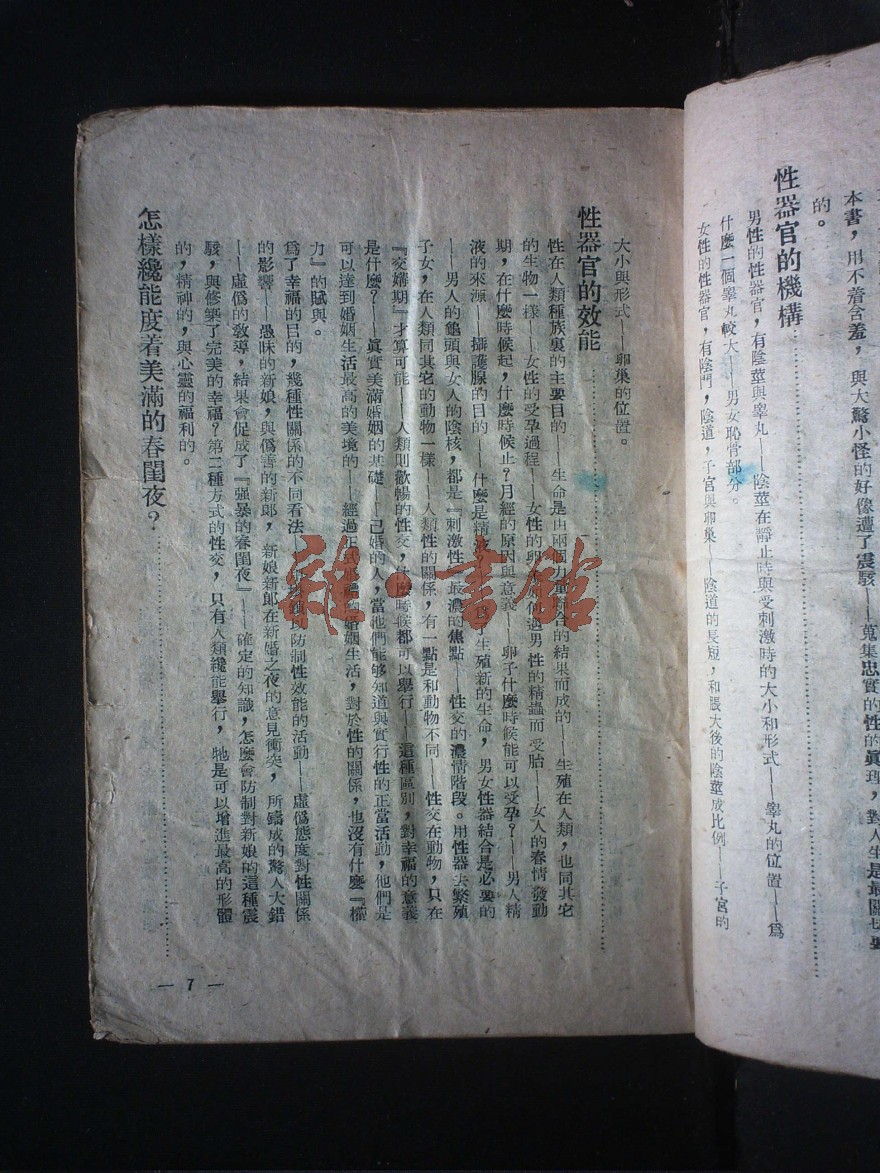 本書，用不着含羞，與大驚小怪的好像遭了震駭——蒐集忠實的性的眞理，對人生是最關切要
的。
性器官的機構
男性的性器官，有陰莖與睾丸——陰莖在靜止時與受刺激時的大小和形式——睾丸的位置——爲
什麼一個睾丸較大——男女恥骨部分。
女性的性器官，有陰門，陰道，子宮與卵巢——陰道的長短，和漲大後的陰莖成比例——子宮的
大小與形式——卵巢的位置。
性器官的效能
性在人類種族裏的主要目的——生命是由兩個
合的結果而成的——生殖在人類，也同其它
的生物一樣——女性的受孕過程——女性的卵
男性的精蟲而受胎——女人的春情發動
期，在什麼時候起，什麼時候止？月經的原因與意義——卵子什麼時候能可以受孕？——男人精
液的來源——攝護腺的目的——什麼是精液——爲了生殖新的生命，男女性器結合是必要的
——男人的龜頭與女人的陰核，都是『刺激性』最濃的焦點——性交的濃情階段。用性器去繁殖
子女，在人類同其它的動物一樣——人類性的關係，有一點是和動物不同——性交在動物，只在
『交媾期』才算可能——人類則歡暢的性交，什麼時候都可以舉行——這種區別，對幸福的意義
是什麼？——眞實美滿婚姻的基礎——已婚的人，當他們能够知道與實行性的正當活動，他們是
可以達到婚姻生活最高的美境的——經過正式
婚姻生活，對於性的關係，也沒有什麼『權
力』的賦與。
爲了幸福的目的，幾種性關係的不同看法——
防制性效能的活動——虛僞態度對性關係
的影響——愚昧的新娘，與僞善的新郎，新娘新郎在新婚之夜的意見衝突，所鑄成的驚人大錯
——虛僞的敎導，結果會促成了『强暴的春閨夜』——確定的知識，怎麼會防制對新娘的這種震
駭，與修築了完美的幸福？第二種方式的性交，只有人類纔能舉行，牠是可以增進最高的形體
的，精神的，與心靈的福利的。
怎樣纔能度着美滿的春閨夜？
— 7 —
雜·書館